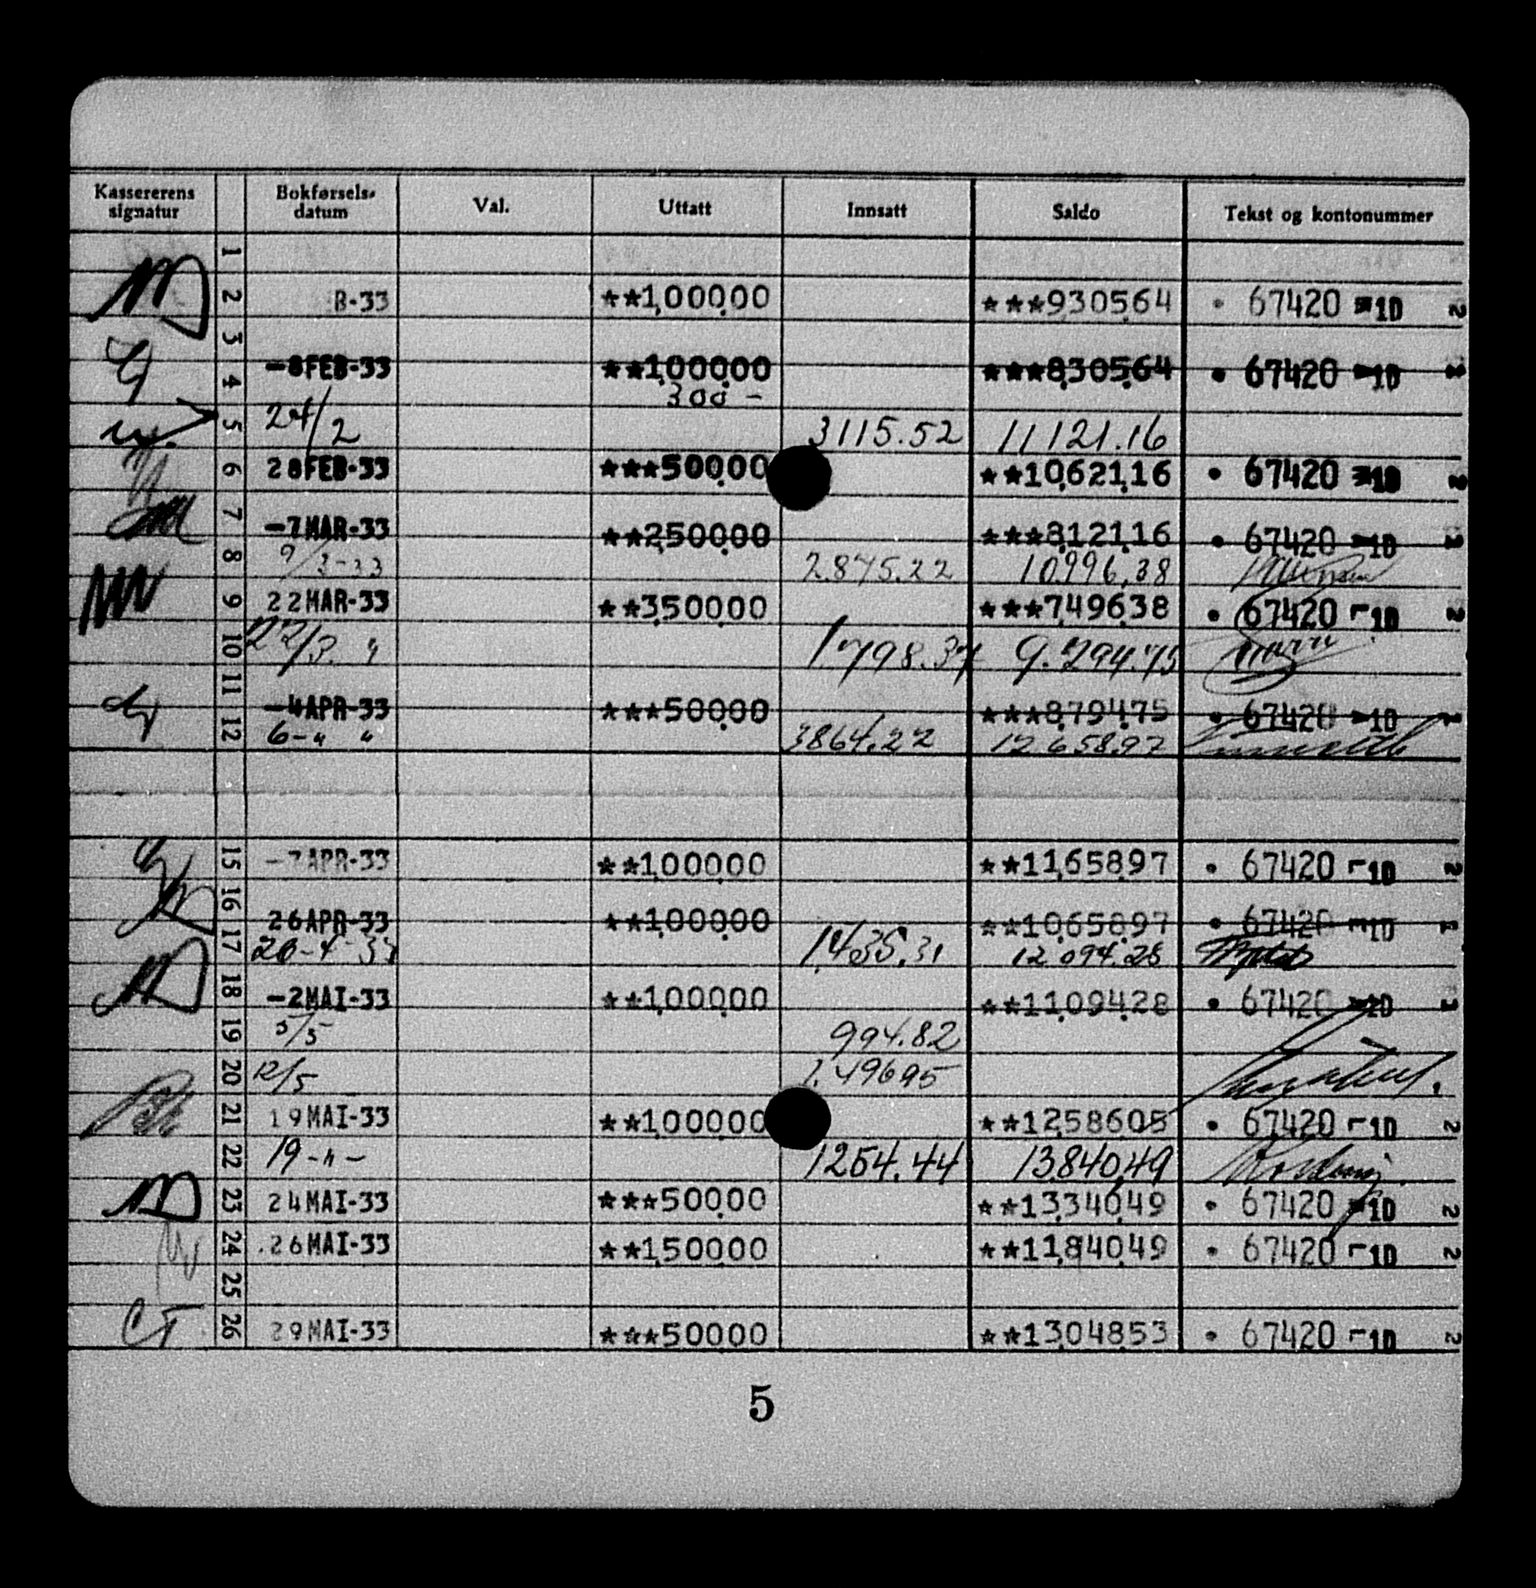 Kassererens signatur | Bokførsels- datum | Val. | Uttatt | Innsatt | Saldo | Tekst og kontonummer
1
2 B-33 **1,000.00 ***9,305.64 • 67420 10 2
3
4 -8FEB-33 **1,000.00 ***8,305.64 • 67420 10 2
300 -
5 24/2 3115.52 11121.16
6 28FEB-33 ***500.00 **10,621.16 • 67420 10 2
7 -7MAR-33 **2,500.00 ***8,121.16 • 67420 10 2
8 9/3-33 2.875.22 10.996,38
9 22MAR-33 **3,500.00 ***7,496.38 • 67420 10 2
10 22/3. " 1798.37 9.294.75
11
12 -4APR-33 ***500.00 ***8,794.75 • 67420 10 2
6-" " 3864.22 12658.97
15 -7APR-33 **1,000.00 **11,658.97 • 67420 10 2
16
26APR-33 **1,000.00 **10,658.97 • 67420 10 2
17 26-4-33 1,435.31 12.094.28
18 -2MAI-33 **1,000.00 **11,094.28 • 67420 10 2
19 5/5 994.82
20 12/5 1.496.95
21 19MAI-33 **1,000.00 **12,586.05 • 67420 10 2
22 19-"- 1254.44 13840,49
23 24MAI-33 ***500.00 **13,340.49 • 67420 10 2
24 .26MAI-33 **1,500.00 **11,840.49 • 67420 10 2
25
26 CT 29MAI-33 ***500.00 **13,048.53 • 67420 10 2
5